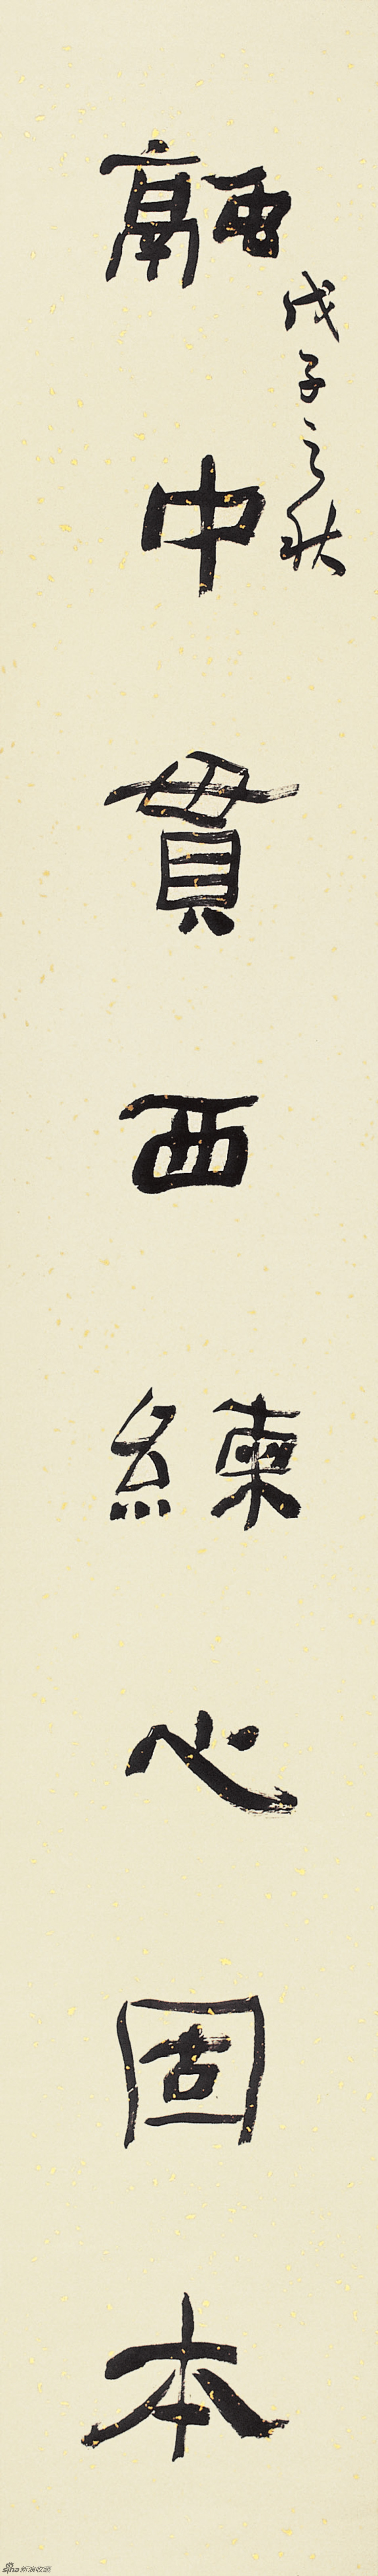 戊子之秋
融中貫西練心固本
sina新浪收藏